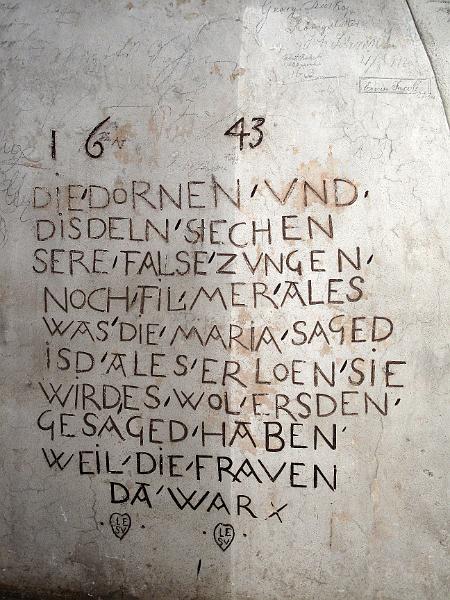 16 43
DIE'DORNEN'VND'
DISDELN'SIECHEN
SERE'FALSE'ZVNGEN'
NOCH'FIL'MER'ALES
WAS'DIE'MARIA'SAGED
ISD'ALES'ERLOEN'SIE
WIRD'ES'WOL'ERSDEN'
GESAGED'HABEN'
WEIL'DIE'FRAVEN
DA'WAR x
LE SV LE SV